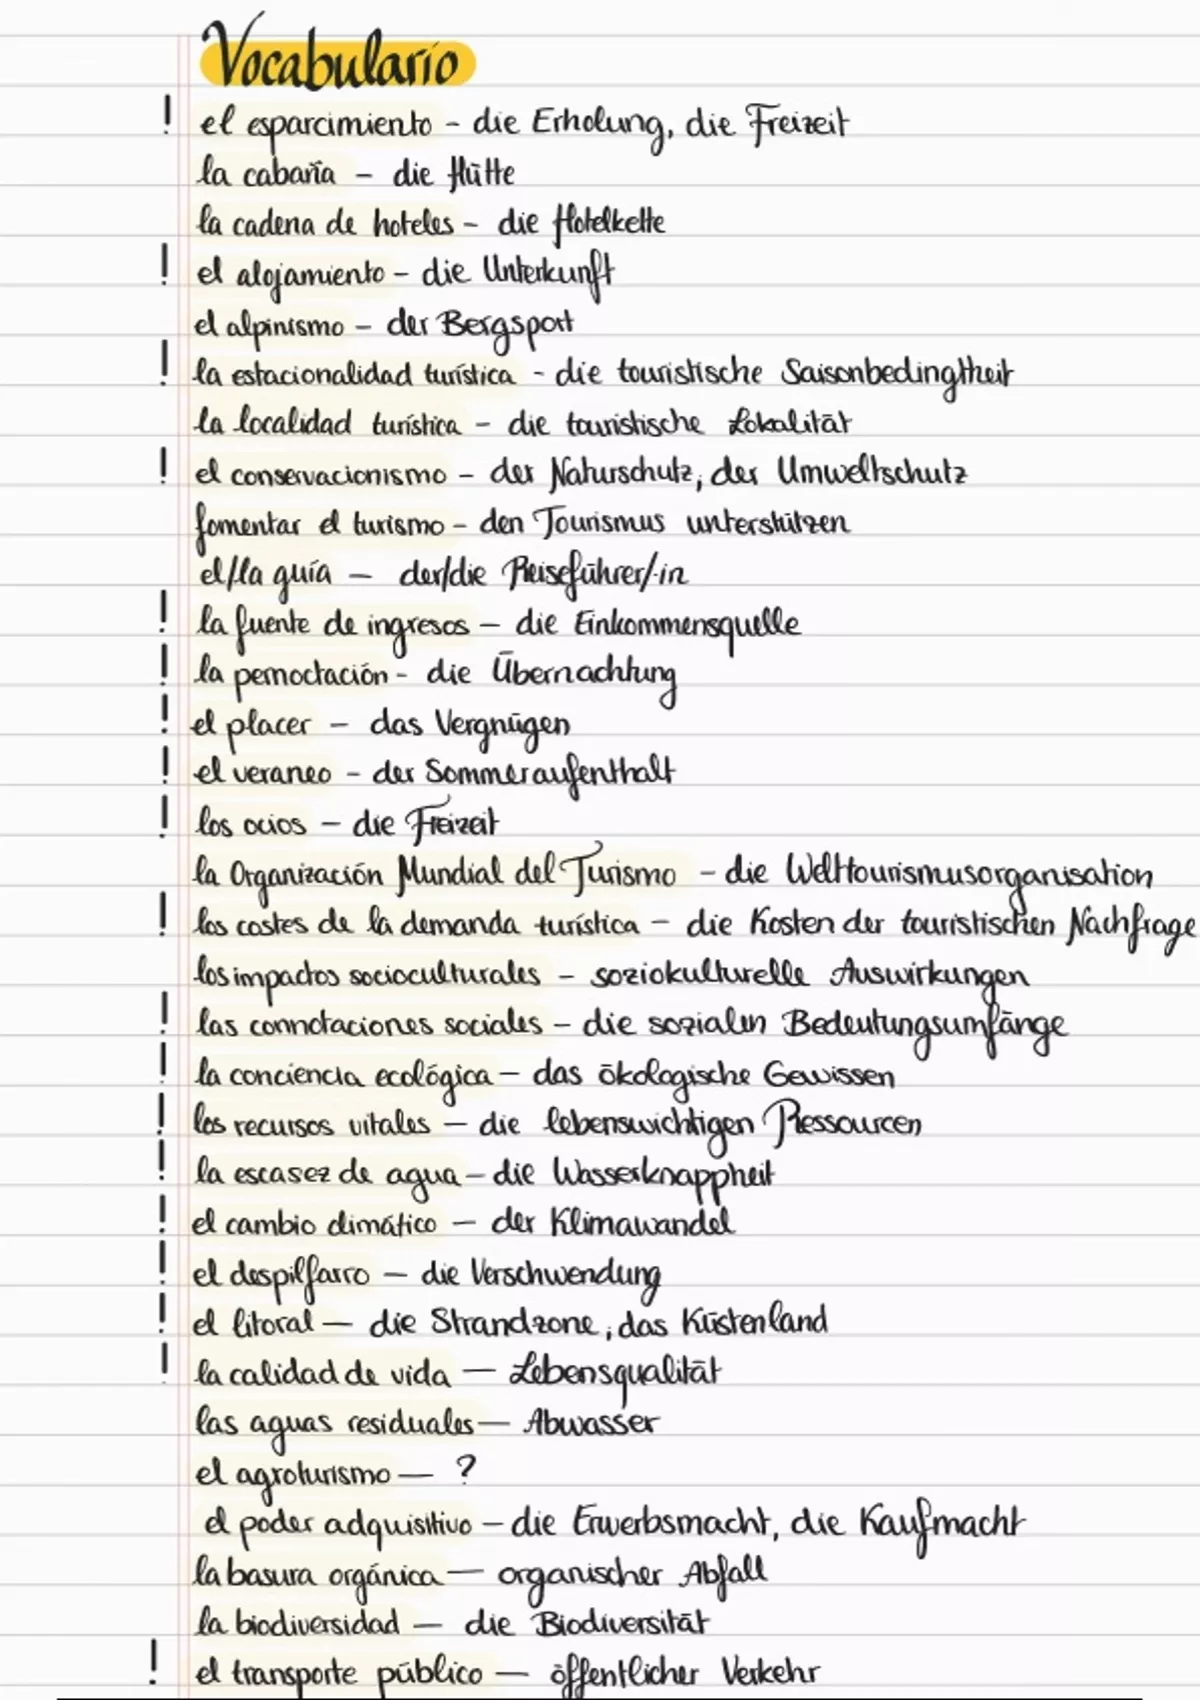 Vocabulario
! el esparcimiento - die Erholung, die Freizeit
la cabaña - die Hütte
la cadena de hoteles - die Hotelkette
! el alojamiento - die Unterkunft
el alpinismo - der Bergsport
! la estacionalidad turística - die touristische Saisonbedingtheit
la localidad turística - die touristische Lokalität
! el conservacionismo - der Naturschutz, der Umweltschutz
fomentar el turismo - den Tourismus unterstützen
el/la guía - der/die Reiseführer/-in
! la fuente de ingresos - die Einkommensquelle
! la pernoctación - die Übernachtung
! el placer - das Vergnügen
! el veraneo - der Sommeraufenthalt
! los ocios - die Freizeit
la Organización Mundial del Turismo - die Welttourismusorganisation
! los costes de la demanda turística - die Kosten der touristischen Nachfrage
los impactos socioculturales - soziokulturelle Auswirkungen
! las connotaciones sociales - die sozialen Bedeutungsumfänge
! la conciencia ecológica - das ökologische Gewissen
! los recursos vitales - die lebenswichtigen Ressourcen
! la escasez de agua - die Wasserknappheit
! el cambio climático - der Klimawandel
! el despilfarro - die Verschwendung
! el litoral - die Strandzone, das Küstenland
! la calidad de vida - Lebensqualität
las aguas residuales - Abwasser
el agroturismo - ?
el poder adquisitivo - die Erwerbsmacht, die Kaufmacht
la basura orgánica - organischer Abfall
la biodiversidad - die Biodiversität
! el transporte público - öffentlicher Verkehr